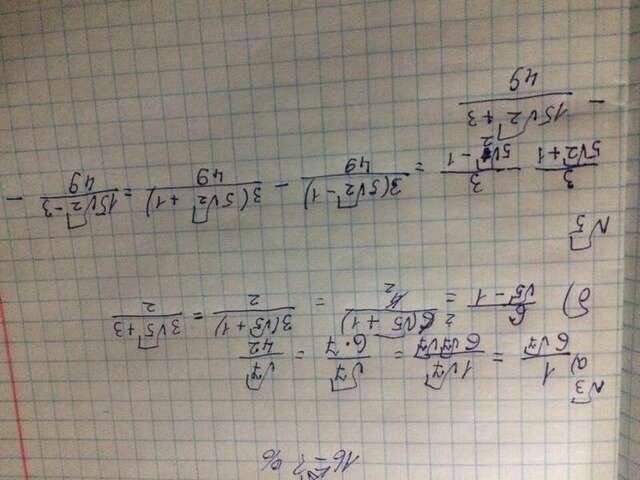 √3
а) 1/(6√7) = 1√7/(6√7√7) = √7/(6·7) = √7/42
б) 6/(√5 - 1) = 6(√5 + 1)/4 = 3(√5 + 1)/2 = (3√5 + 3)/2
√5
3/(5√2 + 1) - 3/(5√2 - 1) = 3(5√2 - 1)/49 - 3(5√2 + 1)/49 = (15√2 - 3)/49 -
- (15√2 + 3)/49